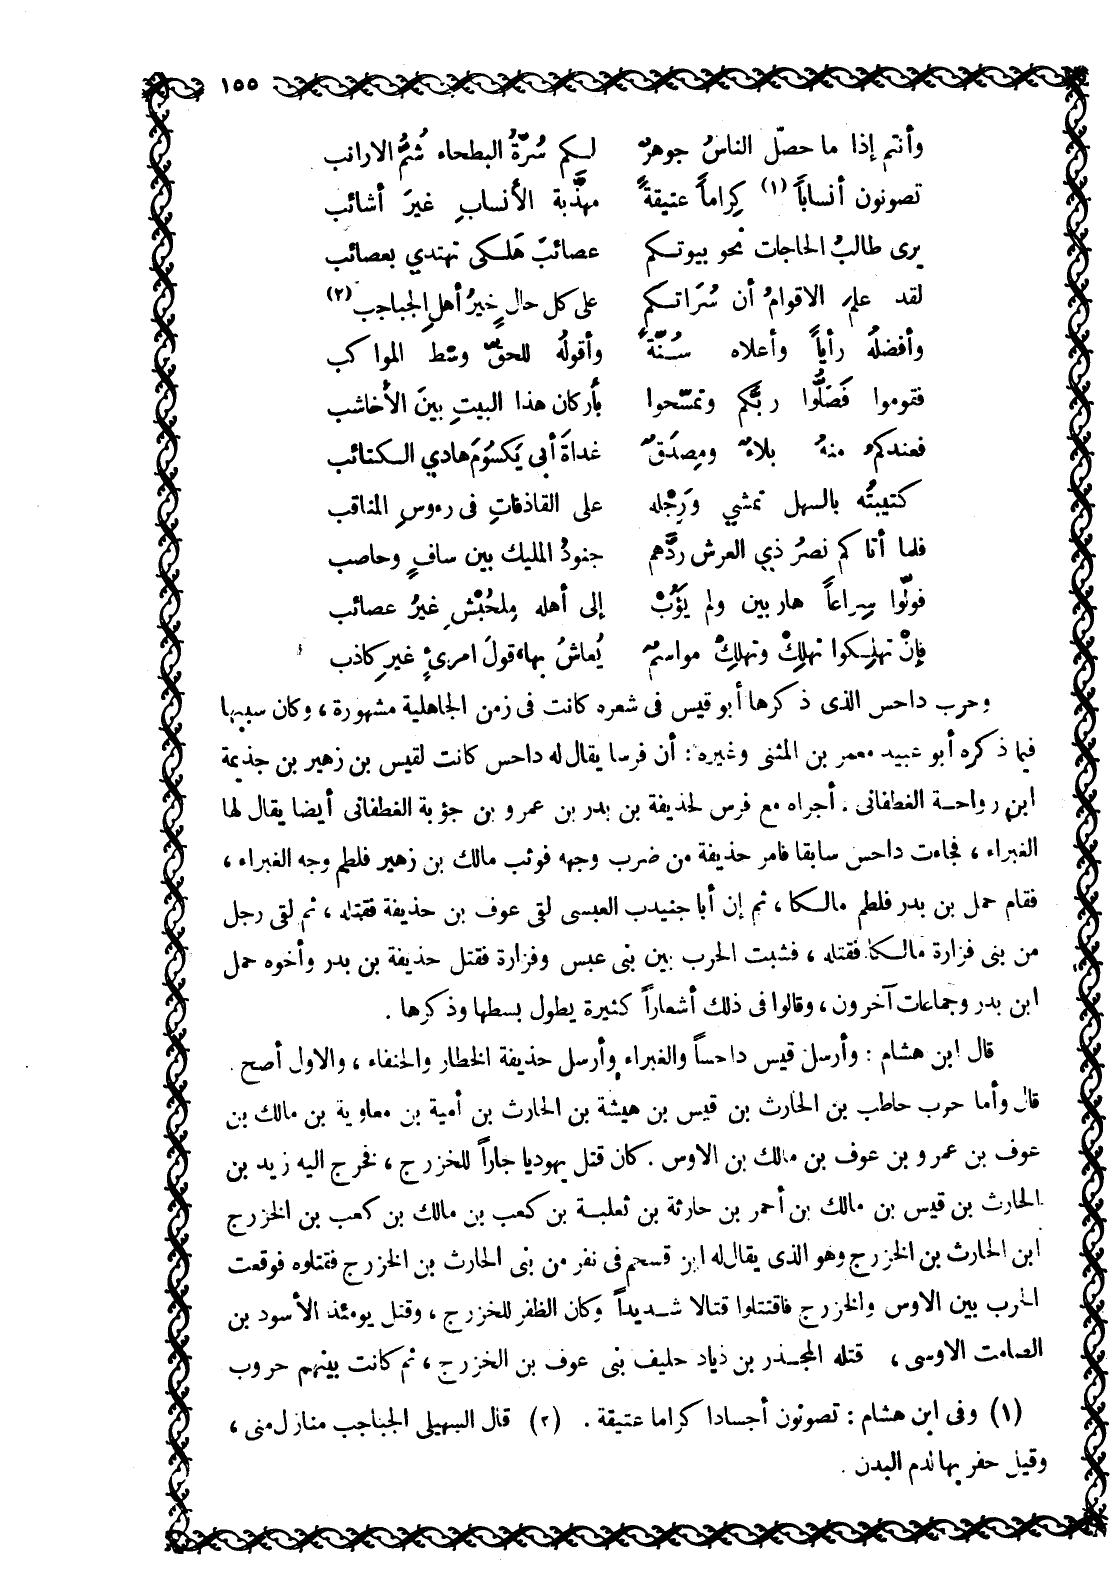 ١٥٥
وأنتم إذا ما حصّل الناسُ جوهرٌ لكم سُرّةُ البطحاء شُمُّ الارانب
تصونون أنساباً (١) كِراماً عتيقةً مهذَّبة الأنسابِ غيرَ أشائب
يرى طالبُ الحاجات نحو بيوتكم عصائبَ هَلكى تهتدي بعصائب
لقد علم الاقوامُ أن سُرَاتكم على كل حالٍ خيرُ أهلِ الجباجب (٢)
وأفضلُه رأياً وأعلاه سُنّةً وأقولُه للحقّ وسْط المواكب
فقوموا فَصَلُّوا ربَّكم وتمسّحوا بأركان هذا البيتِ بينَ الأخاشب
فعندكمُ منهُ بلاءٌ ومصِدَقٌ غداةَ أبى يَكسُومَ هادي الكتائب
كتيبتُه بالسهل تمشي وَرَجْله على القاذفاتِ فى رءوسِ المناقب
فلما أتاكم نصرُ ذي العرش ردَّهم جنودُ المليك بين سافٍ وحاصب
فولّوا سِراعاً هاربين ولم يَؤُبْ إلى أهله مِلحُبْشِ غيرُ عصائب
فإنْ تهلِكوا نهلِكْ وتهلِكْ مواسمٌ يُعاشُ بها، قولَ امرىءٍ غيرِ كاذب
وحرب داحس الذى ذكرها أبو قيس فى شعره كانت فى زمن الجاهلية مشهورة، وكان سببها
فيما ذكره أبو عبيد معمر بن المثنى وغيره: أن فرسا يقال له داحس كانت لقيس بن زهير بن جذيمة
ابن رواحة الغطفانى. أجراه مع فرس لحذيفة بن بدر بن عمرو بن جؤية الغطفانى أيضا يقال لها
الغبراء، فجاءت داحس سابقا فامر حذيفة من ضرب وجهه فوثب مالك بن زهير فلطم وجه الغبراء،
فقام حمل بن بدر فلطم مالكا، ثم إن أبا جنيدب العبسى لقى عوف بن حذيفة فقتله، ثم لقى رجل
من بنى فزارة مالكا فقتله، فشبت الحرب بين بنى عبس وفزارة فقتل حذيفة بن بدر وأخوه حمل
ابن بدر وجماعات آخرون، وقالوا فى ذلك أشعاراً كثيرة يطول بسطها وذكرها.
قال ابن هشام: وأرسل قيس داحساً والغبراء وأرسل حذيفة الخطار والحنفاء، والاول أصح.
قال وأما حرب حاطب بن الحارث بن قيس بن هيشة بن الحارث بن أمية بن معاوية بن مالك بن
عوف بن عمرو بن عوف بن مالك بن الاوس. كان قتل يهوديا جاراً للخزرج، فخرج اليه زيد بن
الحارث بن قيس بن مالك بن أحمر بن حارثة بن ثعلبة بن كعب بن مالك بن كعب بن الخزرج
ابن الحارث بن الخزرج وهو الذى يقال له ابن قسحم فى نفر من بنى الحارث بن الخزرج فقتلوه فوقعت
الحرب بين الاوس والخزرج فاقتتلوا قتالا شديداً وكان الظفر للخزرج، وقتل يومئذ الأسود بن
الصامت الاوسى، قتله المجذر بن ذياد حليف بنى عوف بن الخزرج، ثم كانت بينهم حروب
(١) وفى ابن هشام: تصونون أجسادا كراما عتيقة. (٢) قال السهيلى الجباجب منازل منى،
وقيل حفر بها لدم البدن.